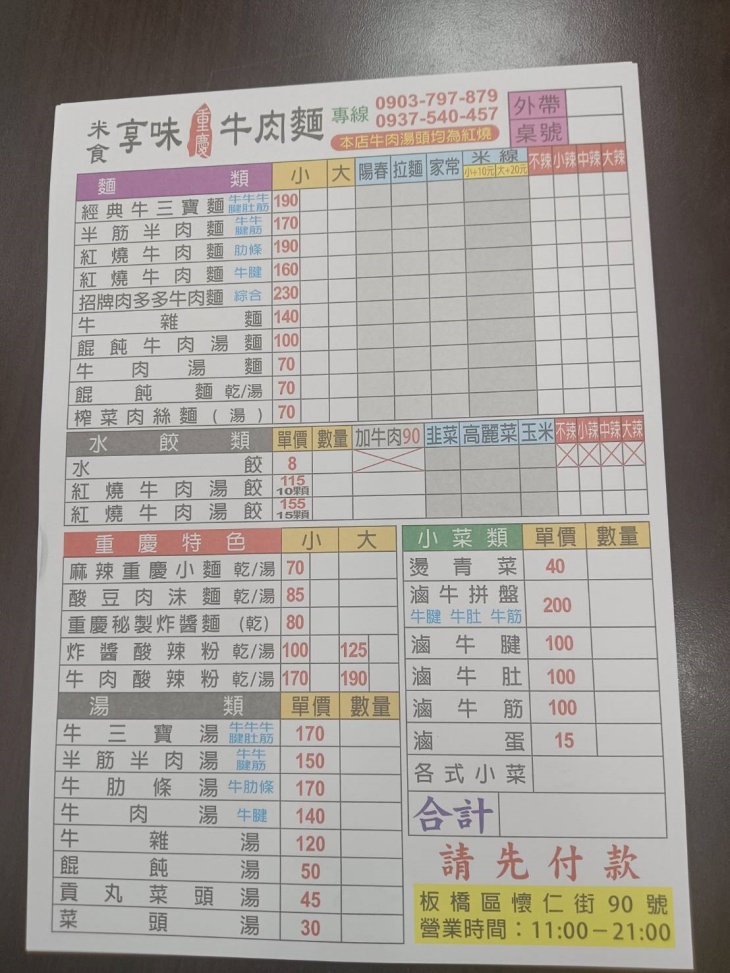 米食 享味 重慶 牛肉麵 專線 0903-797-879
0937-540-457
本店牛肉湯頭均為紅燒
外帶
桌號
麵類 小 大 陽春 拉麵 家常 米線 小+10元 大+20元 不辣 小辣 中辣 大辣
經典牛三寶麵 牛牛牛 腱肚筋 190
半筋半肉麵 牛牛 腱筋 170
紅燒牛肉麵 肋條 190
紅燒牛肉麵 牛腱 160
招牌肉多多牛肉麵 綜合 230
牛雜麵 140
餛飩牛肉湯麵 100
牛肉湯麵 70
餛飩麵 乾/湯 70
榨菜肉絲麵(湯) 70
水餃類 單價 數量 加牛肉90 韭菜 高麗菜 玉米 不辣 小辣 中辣 大辣
水餃 8
紅燒牛肉湯餃 115 10顆
紅燒牛肉湯餃 155 15顆
重慶特色 小 大
麻辣重慶小麵 乾/湯 70
酸豆肉沫麵 乾/湯 85
重慶秘製炸醬麵 (乾) 80
炸醬酸辣粉 乾/湯 100 125
牛肉酸辣粉 乾/湯 170 190
湯類 單價 數量
牛三寶湯 牛牛牛 腱肚筋 170
半筋半肉湯 牛牛 腱筋 150
牛肋條湯 牛肋條 170
牛肉湯 牛腱 140
牛雜湯 120
餛飩湯 50
貢丸菜頭湯 45
菜頭湯 30
小菜類 單價 數量
燙青菜 40
滷牛拼盤 牛腱 牛肚 牛筋 200
滷牛腱 100
滷牛肚 100
滷牛筋 100
滷蛋 15
各式小菜
合計
請先付款
板橋區懷仁街90號
營業時間：11:00－21:00